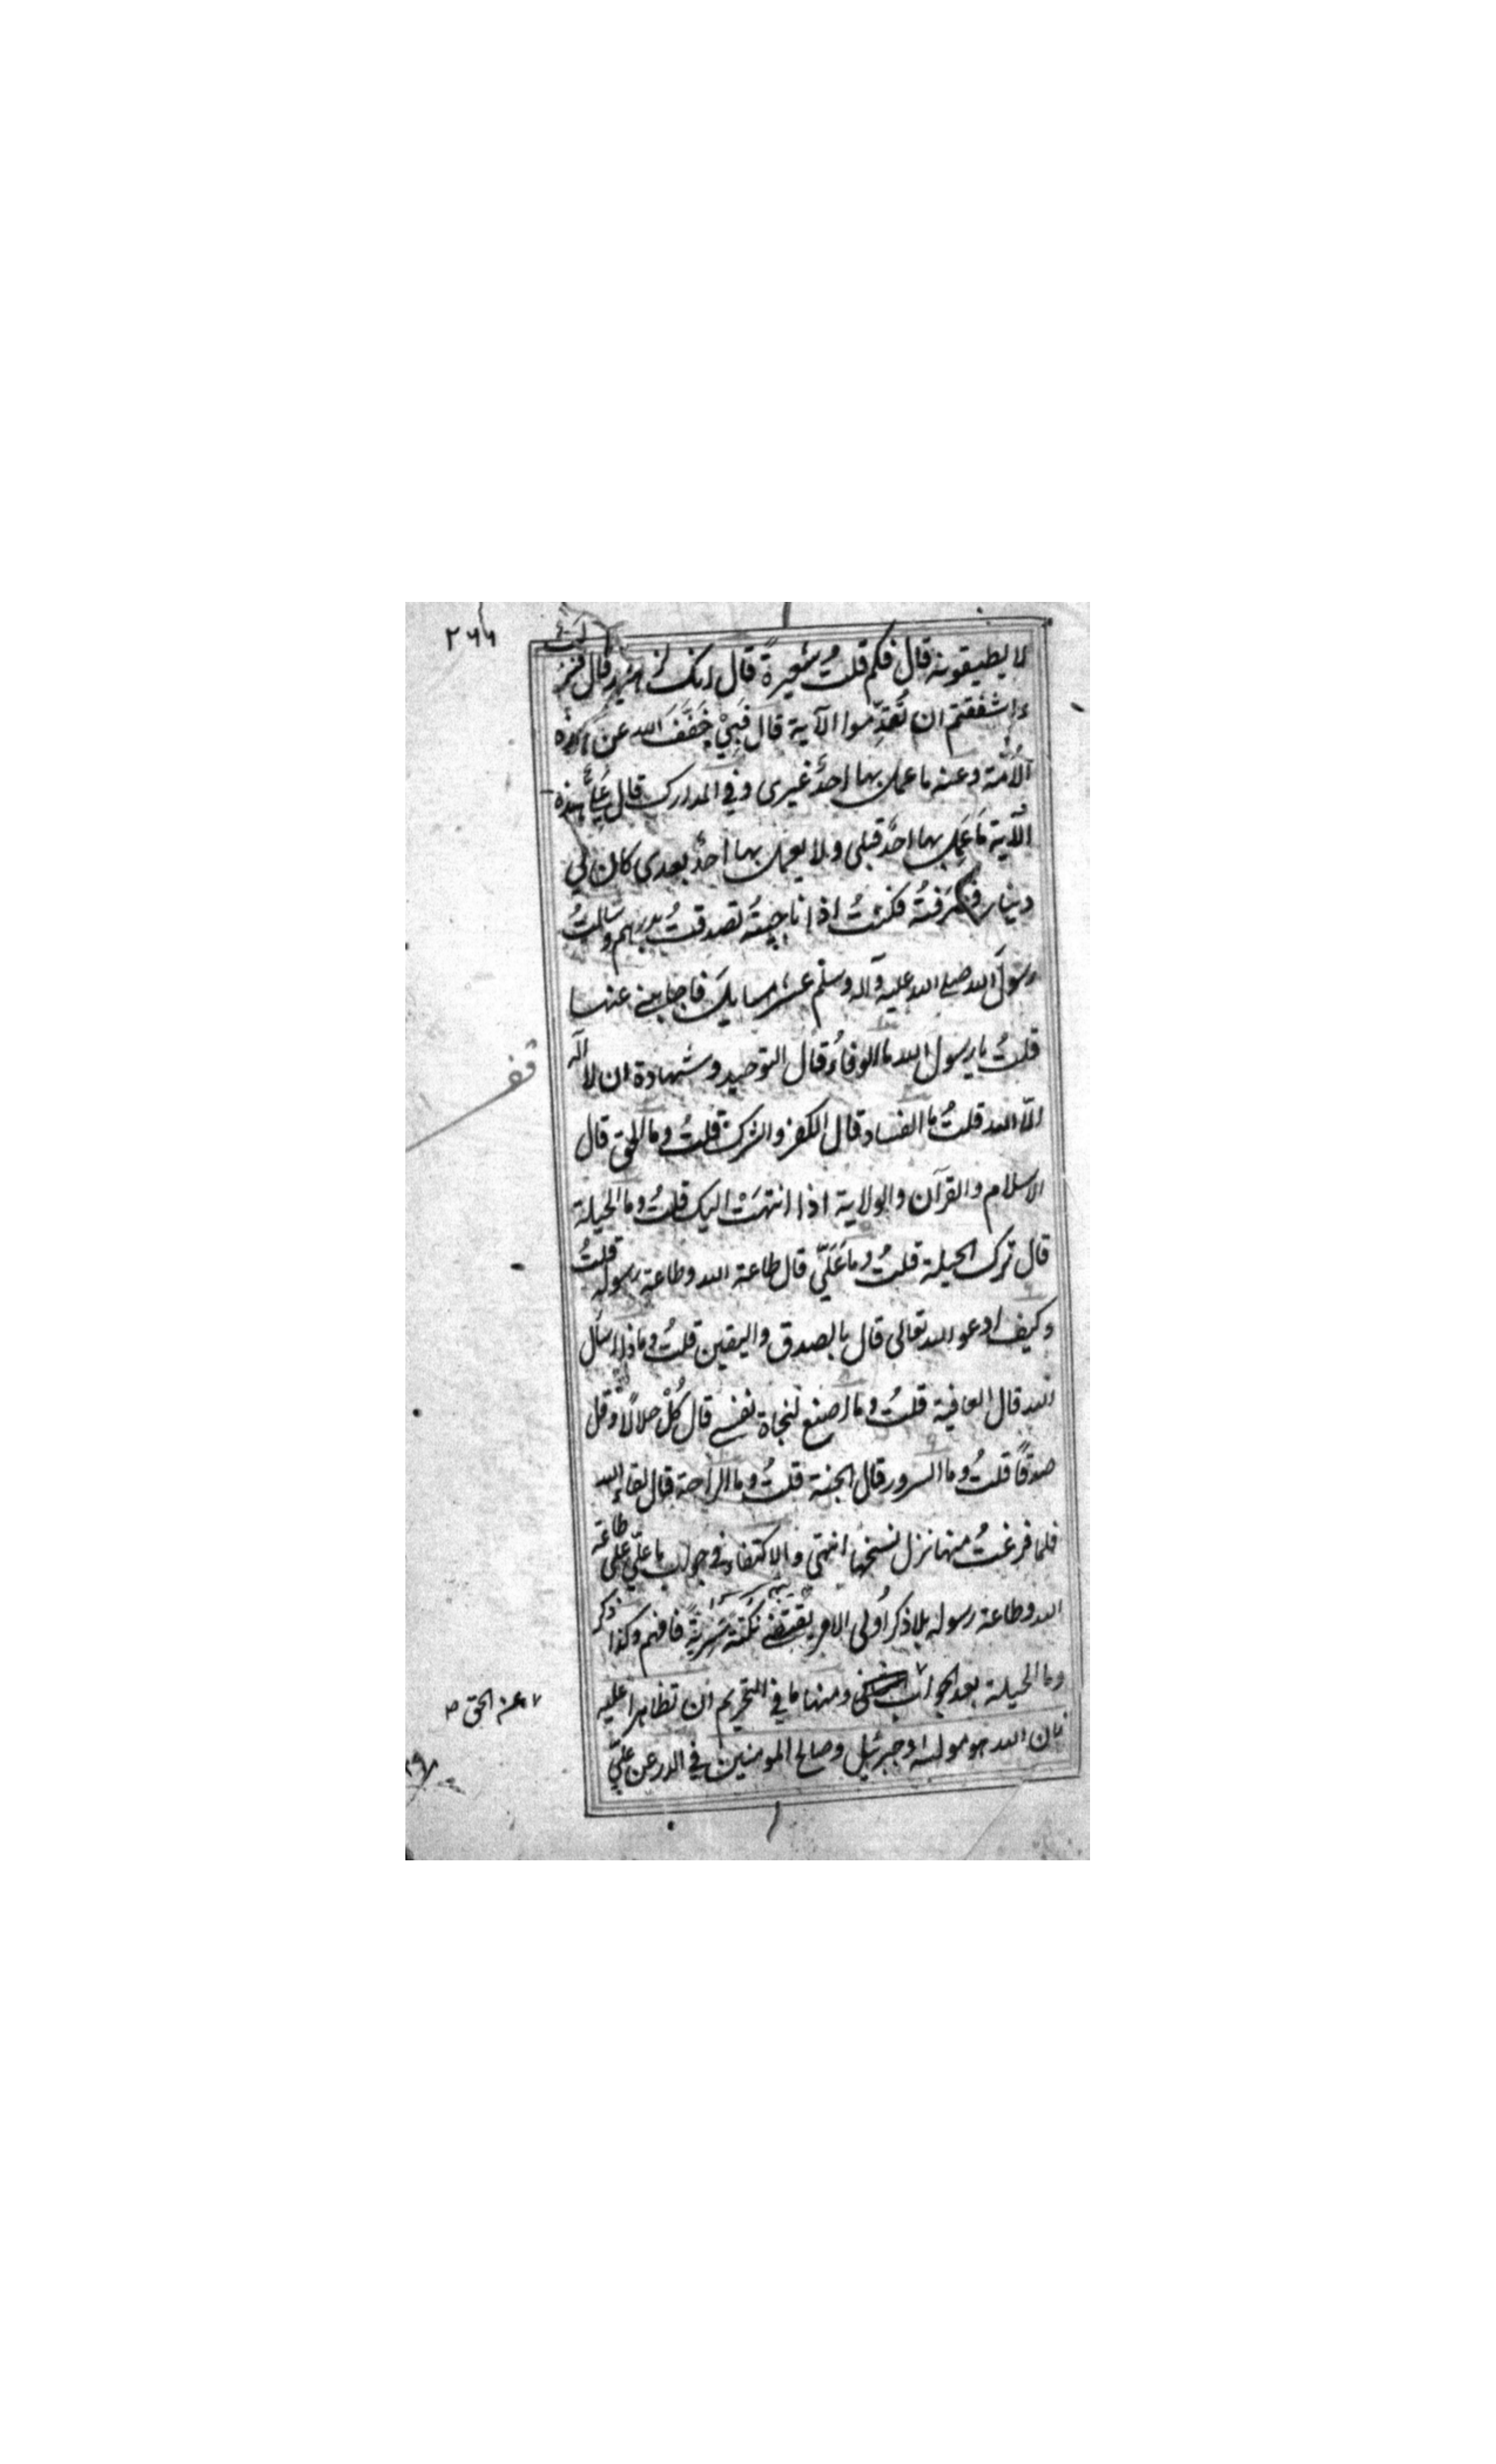 ٢٦٦
لا يطيقونه قال فكم قلتُ شعيرةً قال انك لزهيد قال فنزلت
ءاشفقتم ان تُقدّموا الآية قال فَبِيْ خَفَّفَ الله عن هذه
الاُمّة وعنه ما عمل بها احدٌ غيرى وفي المدارك قال عليٌّ هذه
الآية ما عَمِل بها احدٌ قبلى ولا يعمل بها احدٌ بعدى كان لي
دينار فصرفتُه فكنتُ اذا ناجيتُه تصدقتُ بدرهم وسالتُ
رسولَ الله صلى الله عليه وآله وسلم عشر مسايلَ فاجابنى عنها
قلتُ يا رسول الله ما الوفاءُ قال التوحيد وشهادة ان لا اله
الّا الله قلتُ ما الفساد قال الكفر والشرك قلتُ وما الحق قال
الاسلام والقرآن والولاية اذا انتهَتْ اليك قلتُ وما الحيلة
قال ترك الحيلة قلتُ وما عَلَيَّ قال طاعة الله وطاعة رسوله قلتُ
وكيف ادعو الله تعالى قال بالصدق واليقين قلتُ وماذا اسأل
الله قال العافية قلتُ وما اصنع لنجاة نفسى قال كُلْ حلالًا وقل
صدقًا قلتُ وما السرور قال الجنة قلتُ وما الراحة قال لقاء الله
فلما فرغتُ منها نزل نسخها انتهى والاكتفاء في جواب ما عَلَيَّ على طاعة
الله وطاعة رسوله بلا ذكر اُولى الامر يقتضى نكتةً سَرِيَّةً فافهم وكذا ذكر
وما الحيلة بعد الجواب ومنها ما في التحريم ان تظاهرا عليه
فان الله هو موليه وجبرئيل وصالح المومنين في الدر عن عليّ
عن الحق ص